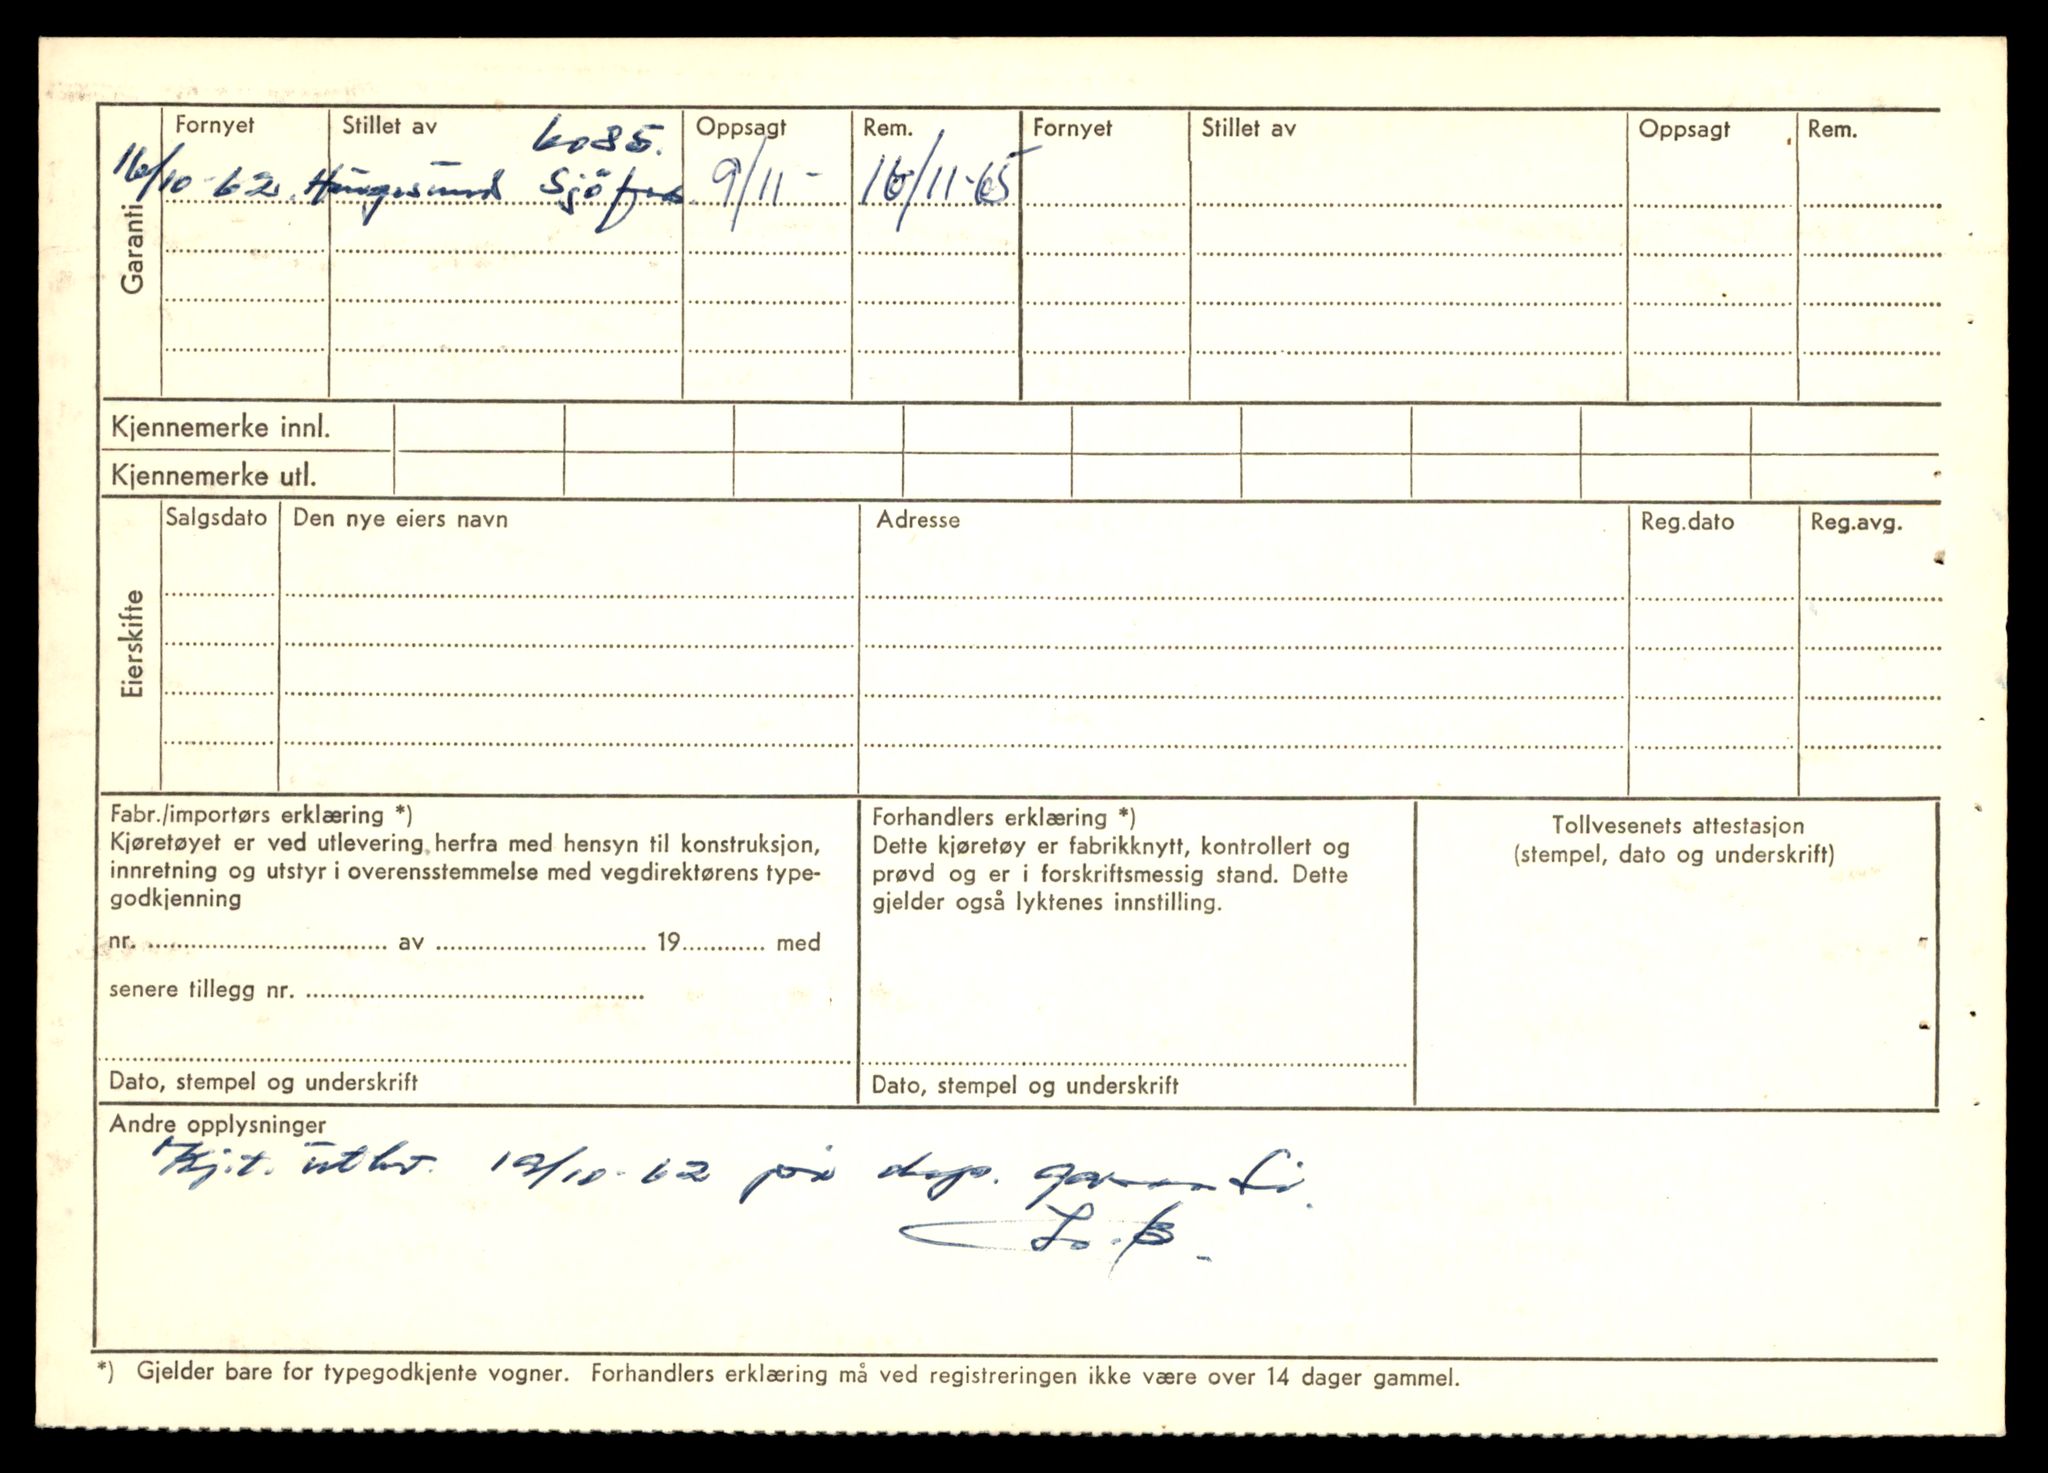 Garanti
Fornyet Stillet av 6085. Oppsagt Rem. Fornyet Stillet av Oppsagt Rem.
16/10-62. Haugesund Sjö 9/11- 16/11-65
Kjennemerke innl.
Kjennemerke utl.
Eierskifte
Salgsdato Den nye eiers navn Adresse Reg.dato Reg.avg.
Fabr./importørs erklæring *)
Kjøretøyet er ved utlevering herfra med hensyn til konstruksjon,
innretning og utstyr i overensstemmelse med vegdirektørens type-
godkjenning
nr. .................... av .................... 19............ med
senere tillegg nr. ....................
Dato, stempel og underskrift
Forhandlers erklæring *)
Dette kjøretøy er fabrikknytt, kontrollert og
prøvd og er i forskriftsmessig stand. Dette
gjelder også lyktenes innstilling.
Dato, stempel og underskrift
Tollvesenets attestasjon
(stempel, dato og underskrift)
Andre opplysninger
Kj.t. utlev. 19/10-62 på dep. garanti.
*) Gjelder bare for typegodkjente vogner. Forhandlers erklæring må ved registreringen ikke være over 14 dager gammel.